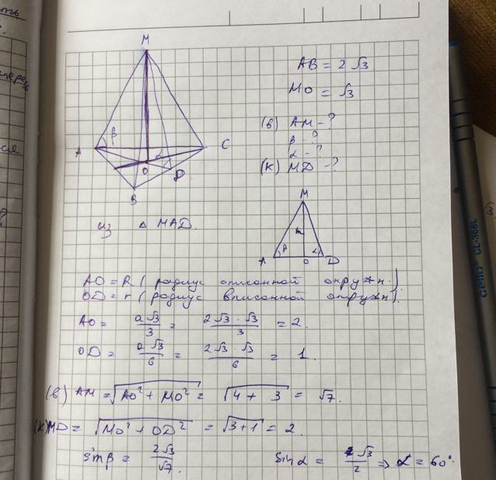 M
AB = 2√3
MO = √3
(b) AM - ?
β - ?
α - ?
(k) MD - ?
A
β
C
O
D
B
из △ MAD.
M
h
A
β
O
α
D
AO = R (радиус описонной окружн.)
OD = r (радиус вписонной окружн).
AO = a√3/3 = 2√3·√3/3 = 2.
OD = a√3/6 = 2√3 √3/6 = 1.
(b) AM = √(AO² + MO²) = √(4 + 3) = √7.
(k) MD = √(MO² + OD²) = √(3+1) = 2
sin β = 2√3/√7.
sin α = √3/2 => α = 60°.